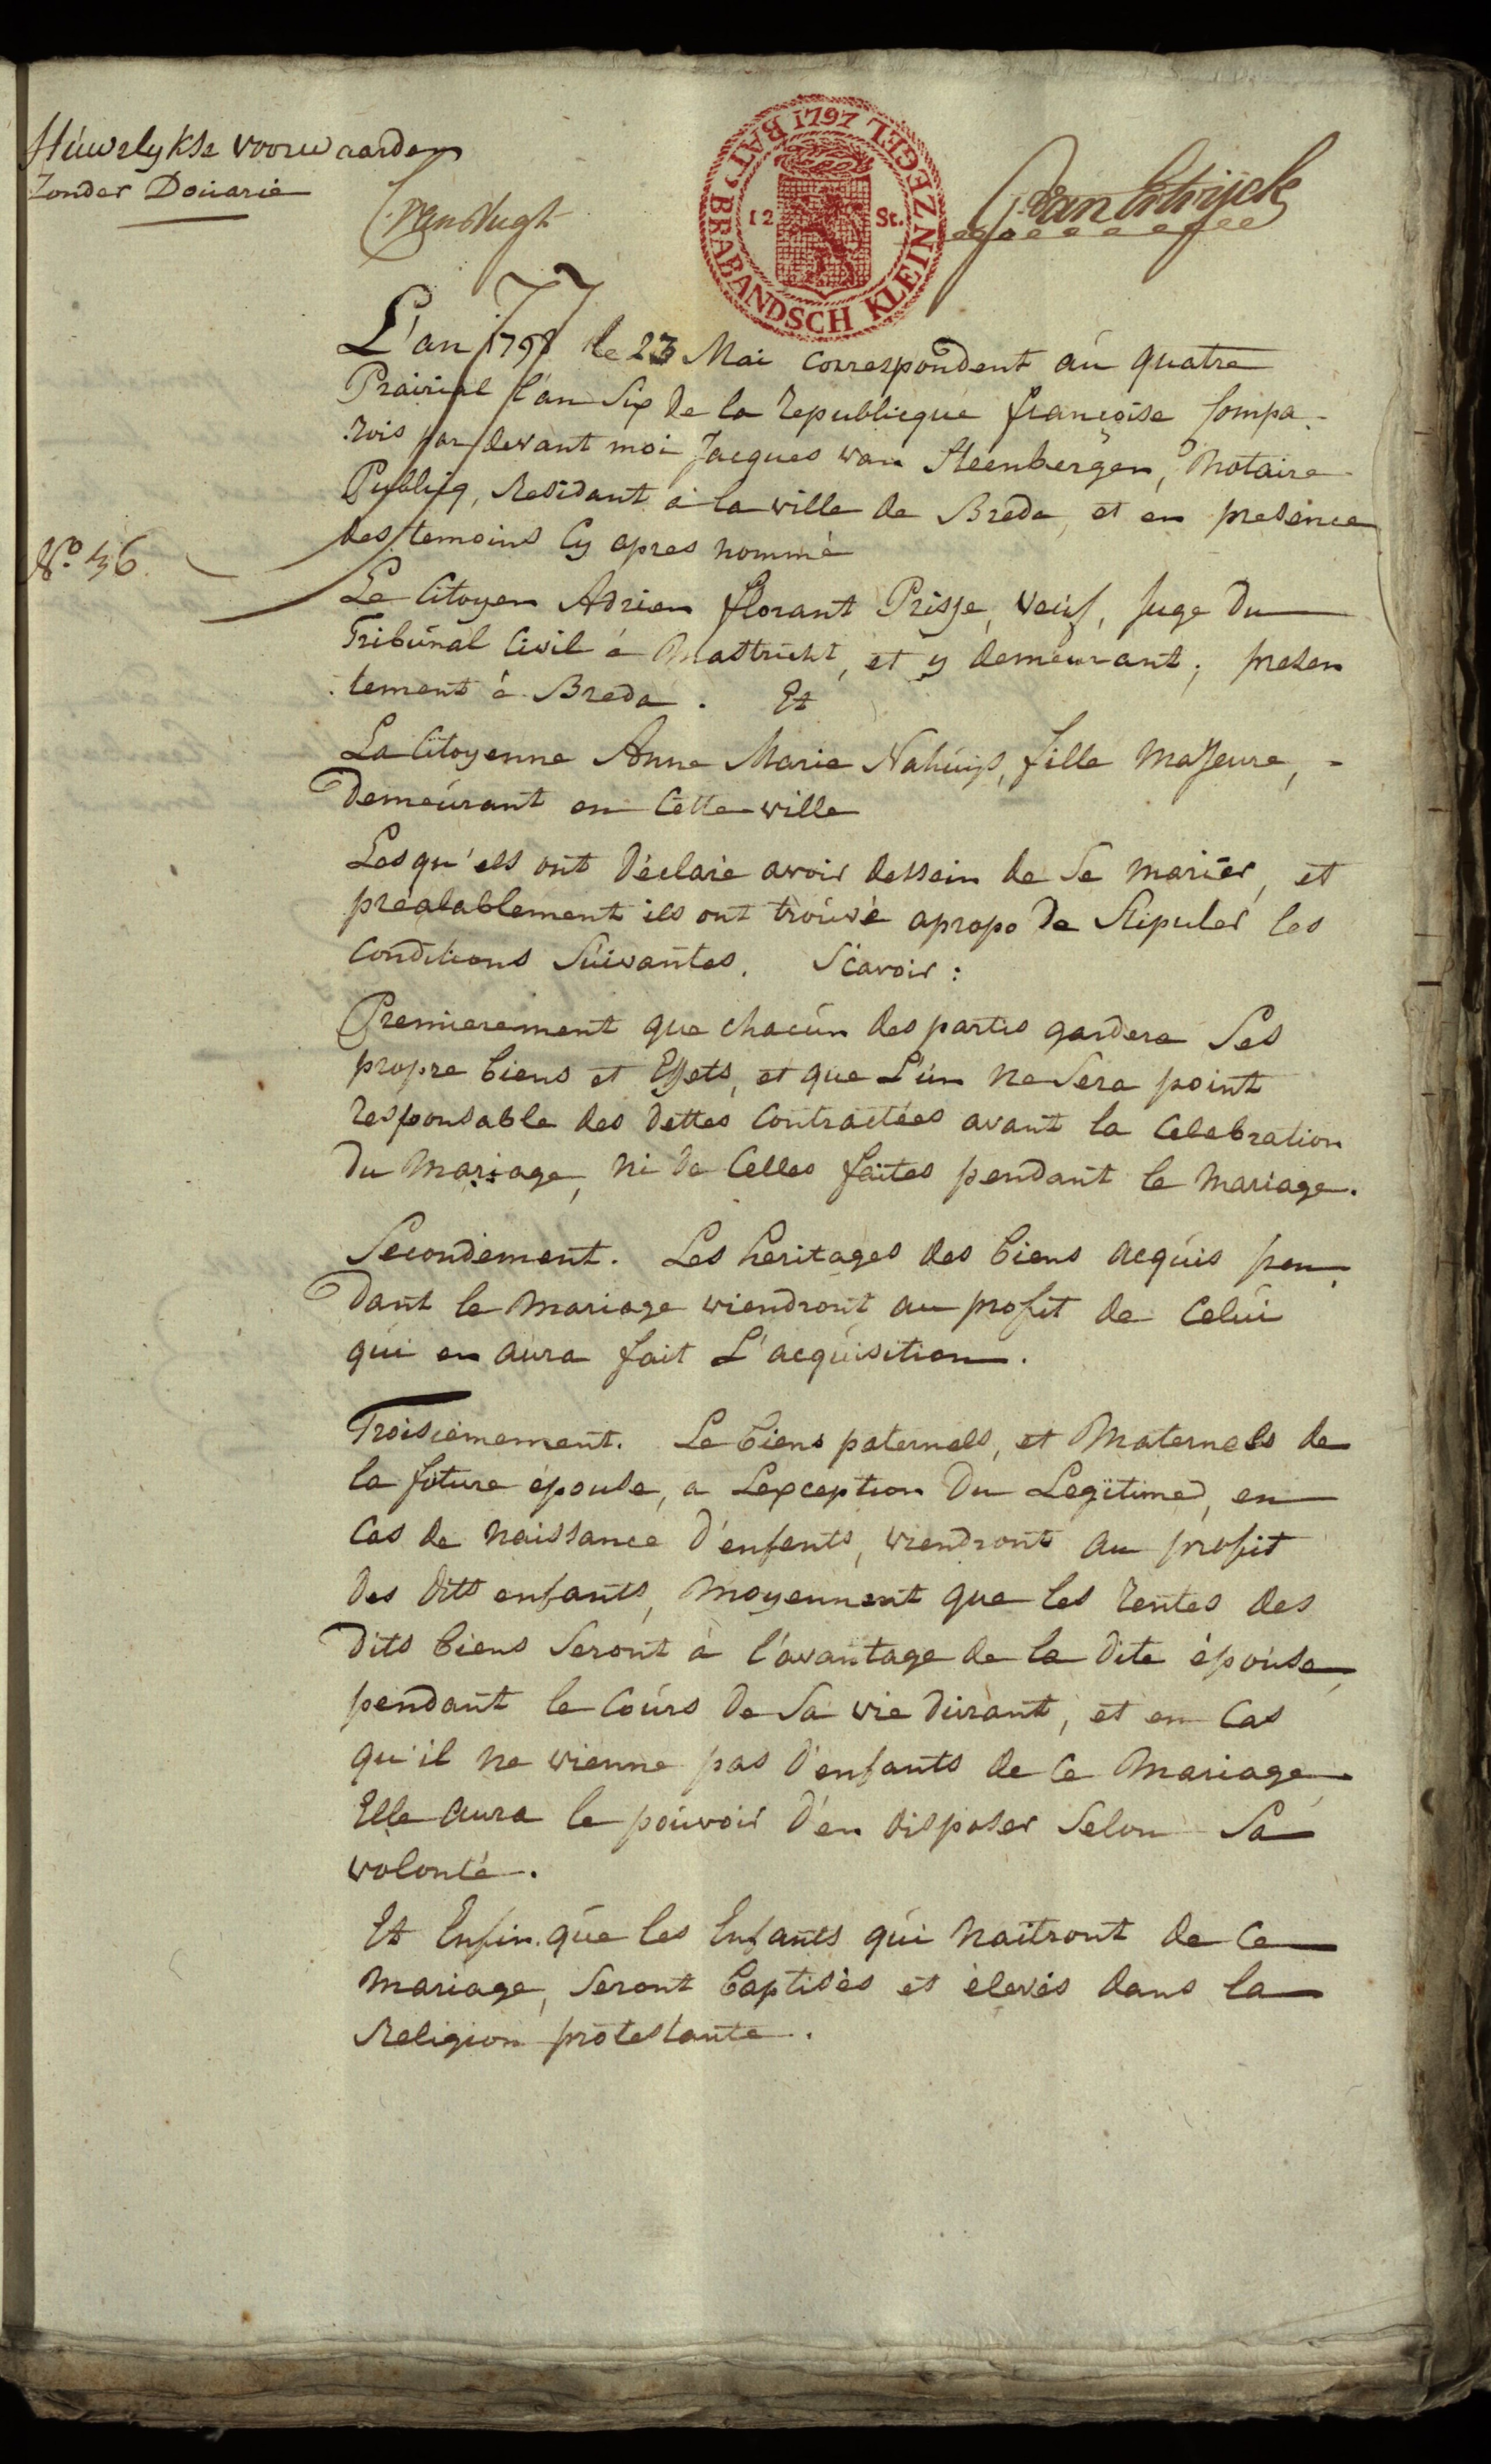 Húwelykse voorwaarden
Zonder Douarie
BAT: BRABANDSCH KLEIN ZEGEL 1797
12 St.
L'an 1798 le 23 Mai correspondent aú quatre
Prairial l'an Six de la republicque françoise Compa-
rois par devant moi Jacques van Steenbergen, Notaire
Publicq, Residant a la ville de Breda, et en presence
des temoins Cy apres nommé
No. 36.
Le Citoyen Adrien florant Prisse, veuf, Juge du
Tribúnal Civil á Mastricht, et y demeurant, presen
tement á Breda. Et
La Citoyenne Anne Marie Nahúijs, fille Majeure,
Demeúrant en Cette ville
Lesqu'els ont déclaré avoir dessein de Se marier, et
préalablement ils ont troúvé apropo de Stipuler les
Conditions Súivantes. Scavoir:
Premierement que chacún des partis gardera Ses
propre biens et Effets, et que L'ún ne Sera point
responsable des dettes Contractées avant la Celebration
du Mariage, ni de Celles faites pendant le Mariage.
Secondement. Les heritages des biens acqúis pen-
dant le Mariage viendront au profit de Celúi
qúi en aúra fait L'acqúisition.
Troisiemement. Le biens paternels, et Maternels de
la future épouse, a Lexception du Legitime, en
Cas de Naissance d'enfents, viendront au profit
des ditts enfants, Moyennent que les rentes des
dits biens Seront á l'avantage de la dite époúse,
pendant le Coúrs de Sa vie dúrant, et en Cas
qu'il ne vienne pas d'enfants de Ce Mariage,
Elle aura le poúvoir d'en disposer Selon Sa
volonté.
Et Enfin qúe les Enfants qúi Naitront de Ce
Mariage, Seront baptisés et élevés dans la
Religion protestante.